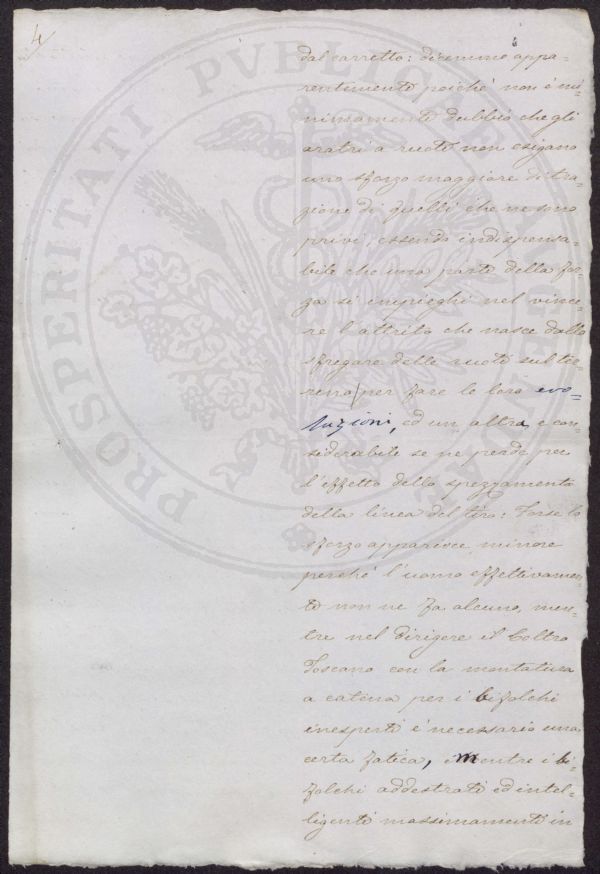 4
dal carretto: dicemmo appa-
rentemente poiché non é mi-
nimamente dubbio che gli
aratri a ruote non esigano
uno sforzo maggiore di tra-
zione di quelli che ne sono
privi, essendo indispensa-
bile che una parte della for-
za si impieghi nel vince-
re l'attrito che nasce dallo
sfregare delle ruote sul ter-
reno per fare le loro evo-
luzioni, ed un altra, e con-
siderabile se ne perde per
l'effetto dello spezzamento
della linea del tiro: Forse lo
sforzo apparisce minore
perché l'uomo effettivamen-
te non ne fa alcuno, men-
tre nel dirigere il Coltro
Toscano con la montatura
a catena per i bifolchi
inesperti é necessario una
certa fatica, mentre i bi-
folchi addestrati ed intel-
ligenti massimamente in
PROSPERITATI PVBLICAE AVGENDAE